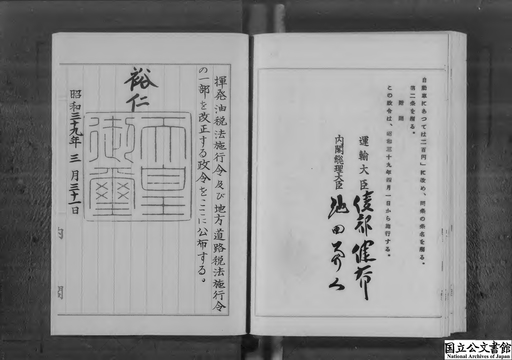 自動車にあつては二百円」に改め、同条の条名を削る。
第二条を削る。
附 則
この政令は、昭和三十九年四月一日から施行する。
運輸大臣 綾部健太郎
内閣総理大臣 池田勇人
揮発油税法施行令及び地方道路税法施行令
の一部を改正する政令をここに公布する。
裕仁
天皇御璽
昭和三十九年三月三十一日
国立公文書館
National Archives of Japan